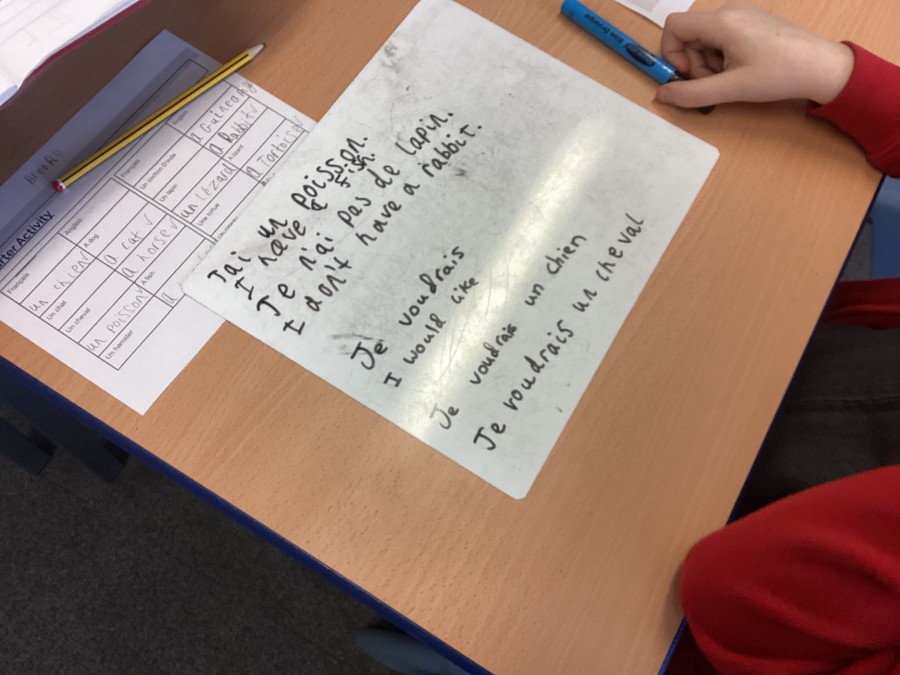 J'ai un poisson.
I have a fish.
Je n'ai pas de lapin.
I don't have a rabbit.
Je voudrais
I would like
Je voudrais un chien
Je voudrais un cheval
ter Activity
Français
Anglais
Français
Anglais
un chien
A dog
Un cochon d'Inde
a Guinea
Un chat
a cat ✓
Un lapin
a Rabbit ✓
Un cheval
a horse ✓
un lézard
A lizard
un poisson
A fish
Une tortue
a Tortoise
Un hamster
a